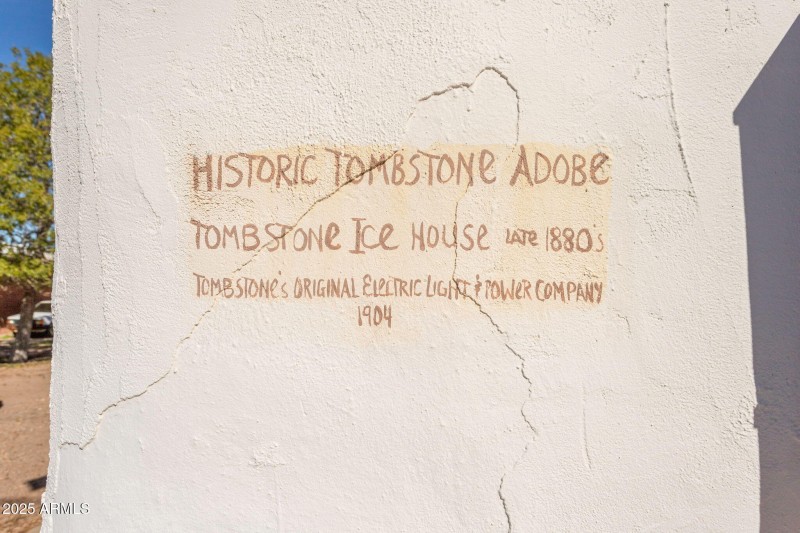 HISTORIC TOMBSTONE ADOBE
TOMBSTONE ICE HOUSE LATE 1880's
TOMBSTONE'S ORIGINAL ELECTRIC LIGHT & POWER COMPANY
1904
2025 ARMLS